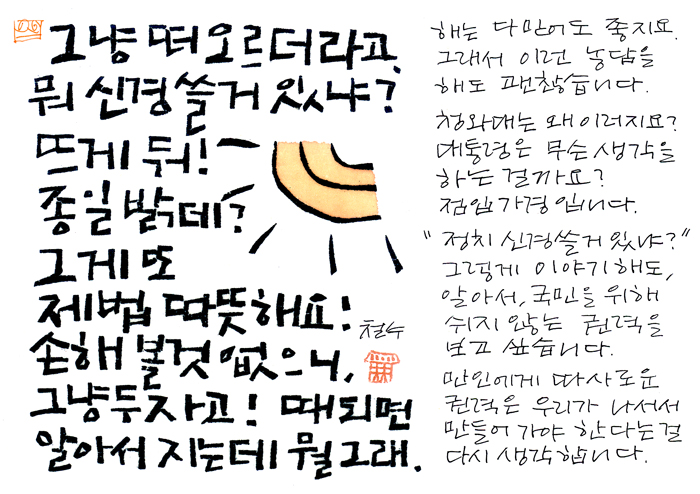 그냥 떠오르더라고.
뭐 신경쓸거 있냐?
뜨게 둬!
종일 밝데?
그게 또
제법 따뜻해요!
손해 볼것 없으니,
그냥두자고! 때되면
알아서 지는데 뭘그래.
철수
해는 다 믿어도 좋지요.
그래서 이런 농담을
해도 괜찮습니다.
청와대는 왜 이러지요?
대통령은 무슨 생각을
하는 걸까요?
점입가경입니다.
"정치 신경쓸거 있냐?"
그렇게 이야기해도,
알아서, 국민을 위해
쉬지 않는 권력을
보고 싶습니다.
만인에게 따사로운
권력은 우리가 나서서
만들어 가야 한다는걸
다시 생각합니다.